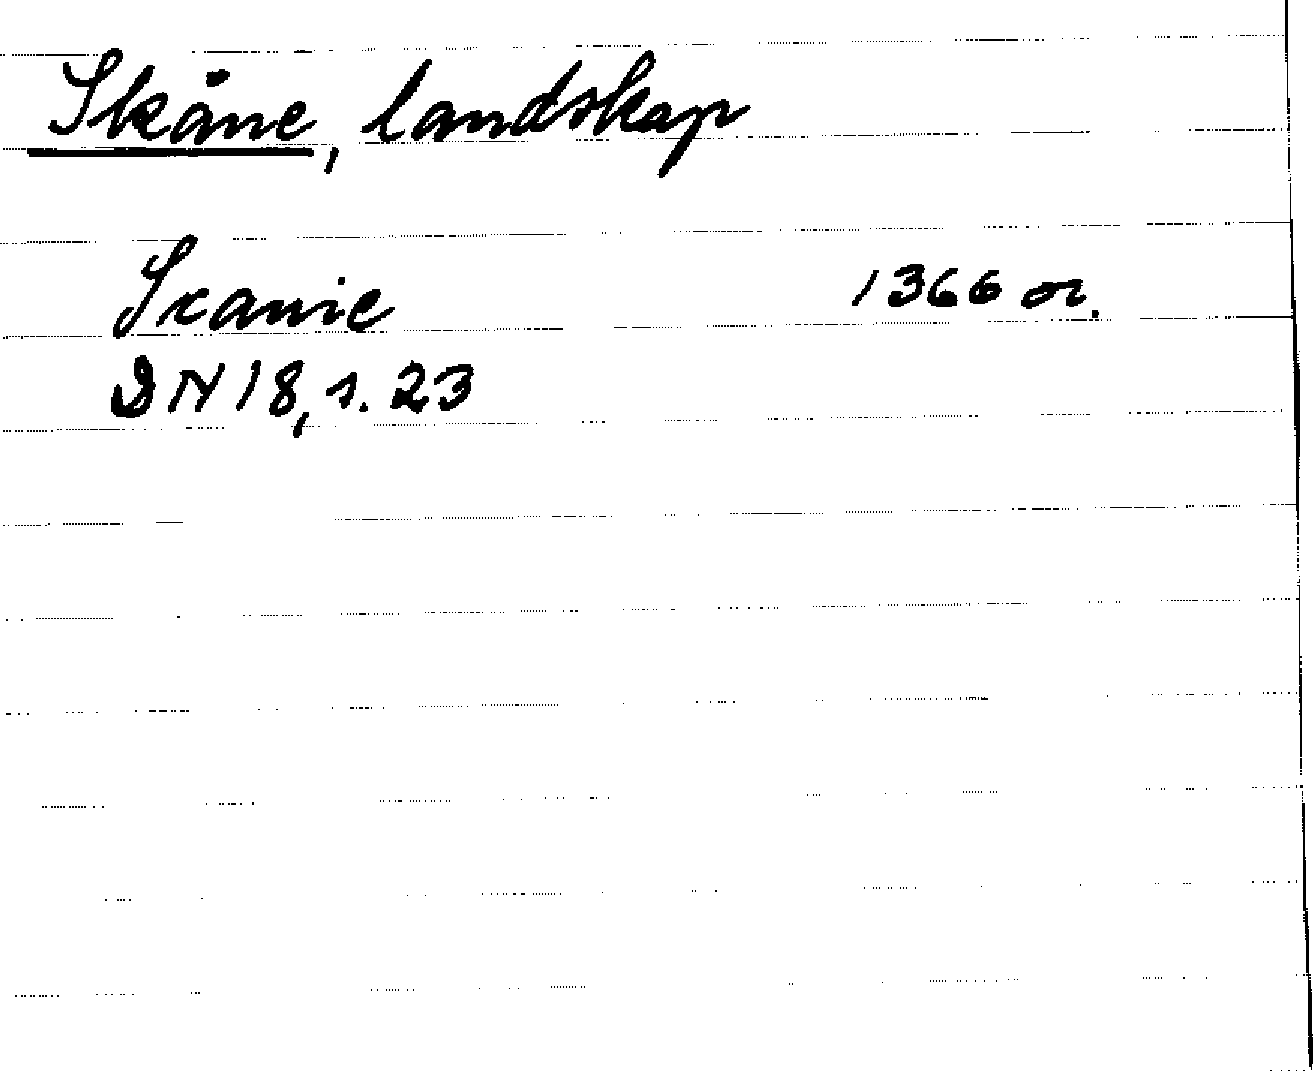 Skåne, landskap
Scanie 1366 or.
DN 18, s. 23